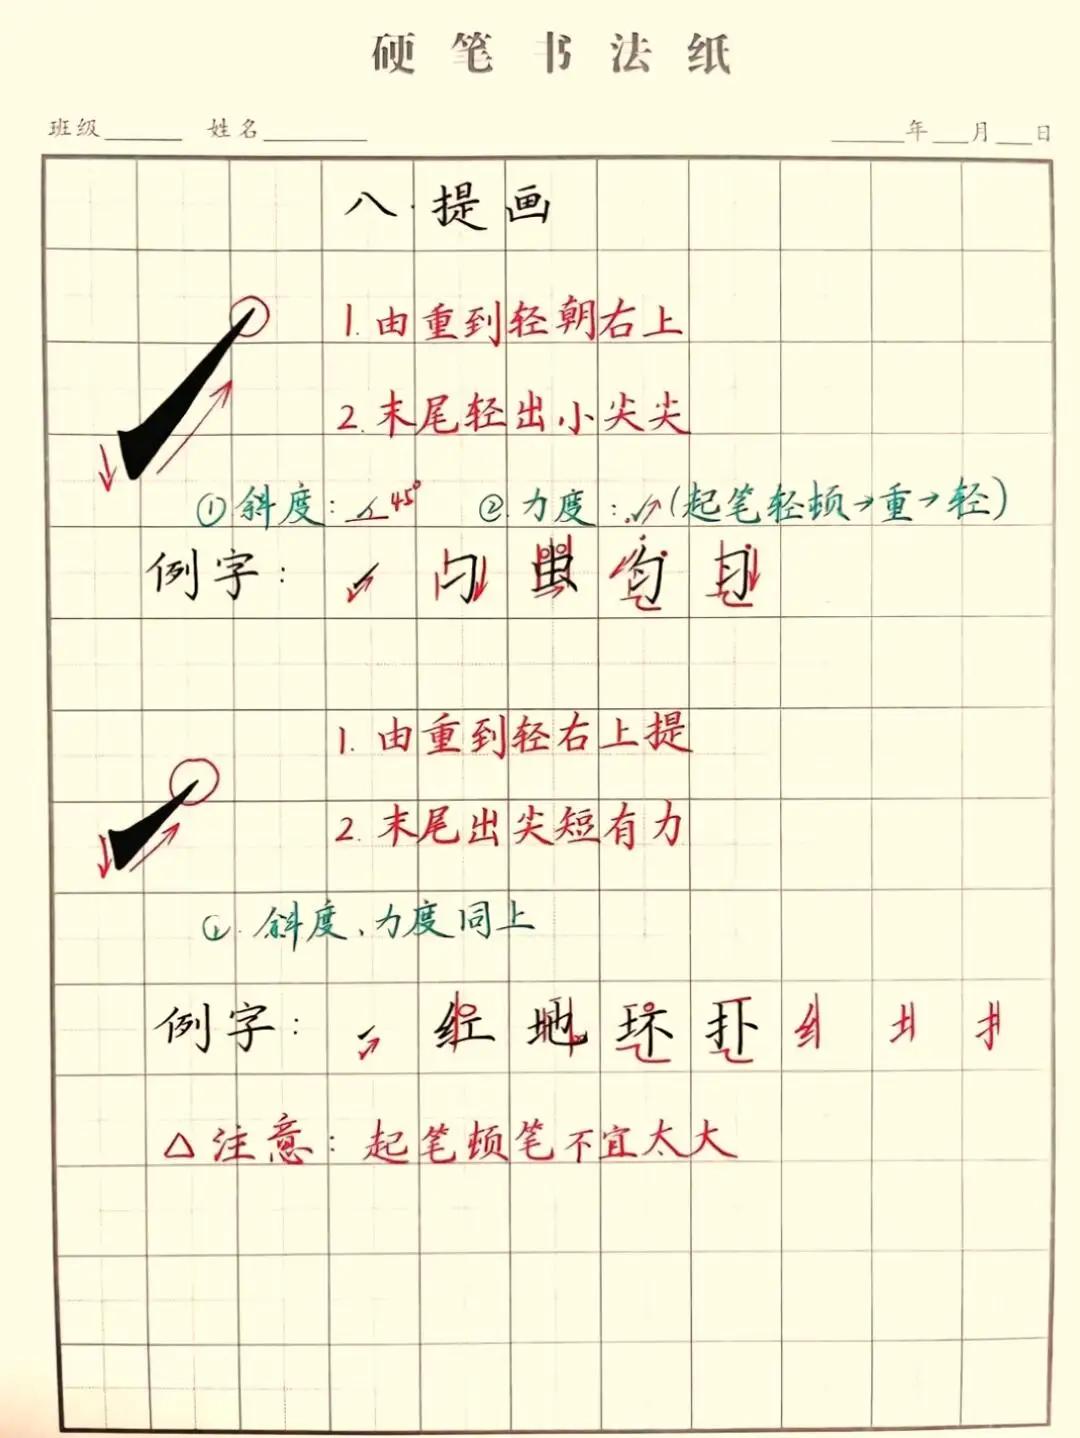 硬笔书法纸
班级______ 姓名______ ______年___月___日
八.提画
1.由重到轻朝右上
2.末尾轻出小尖尖
①斜度:45° ②力度:(起笔轻顿→重→轻)
例字: 习 虫 匀
1.由重到轻右上提
2.末尾出尖短有力
斜度、力度同上
例字: 红 地 环 扑 纟 土 扌
△注意:起笔顿笔不宜太大